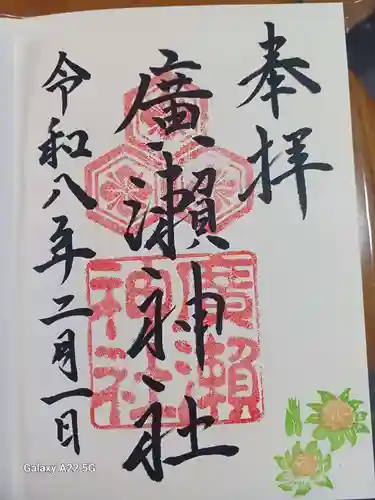 奉拝
廣瀬神社
廣瀬
神社
令和八年二月一日
Galaxy A22 5G